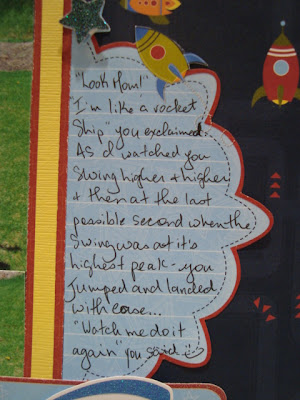 "Look Mom!"
I'm like a rocket
Ship" you exclaimed.
As I watched you
Swing higher + higher
+ then at the last
possible second when the
Swing was at it's
highest peak - you
Jumped and landed
with ease...
"Watch me do it
again" you said :)